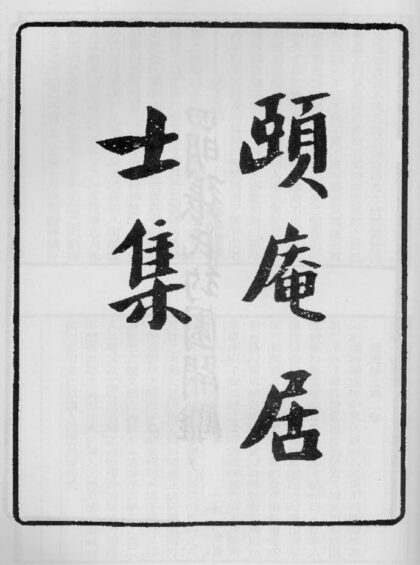 頤庵居
士集